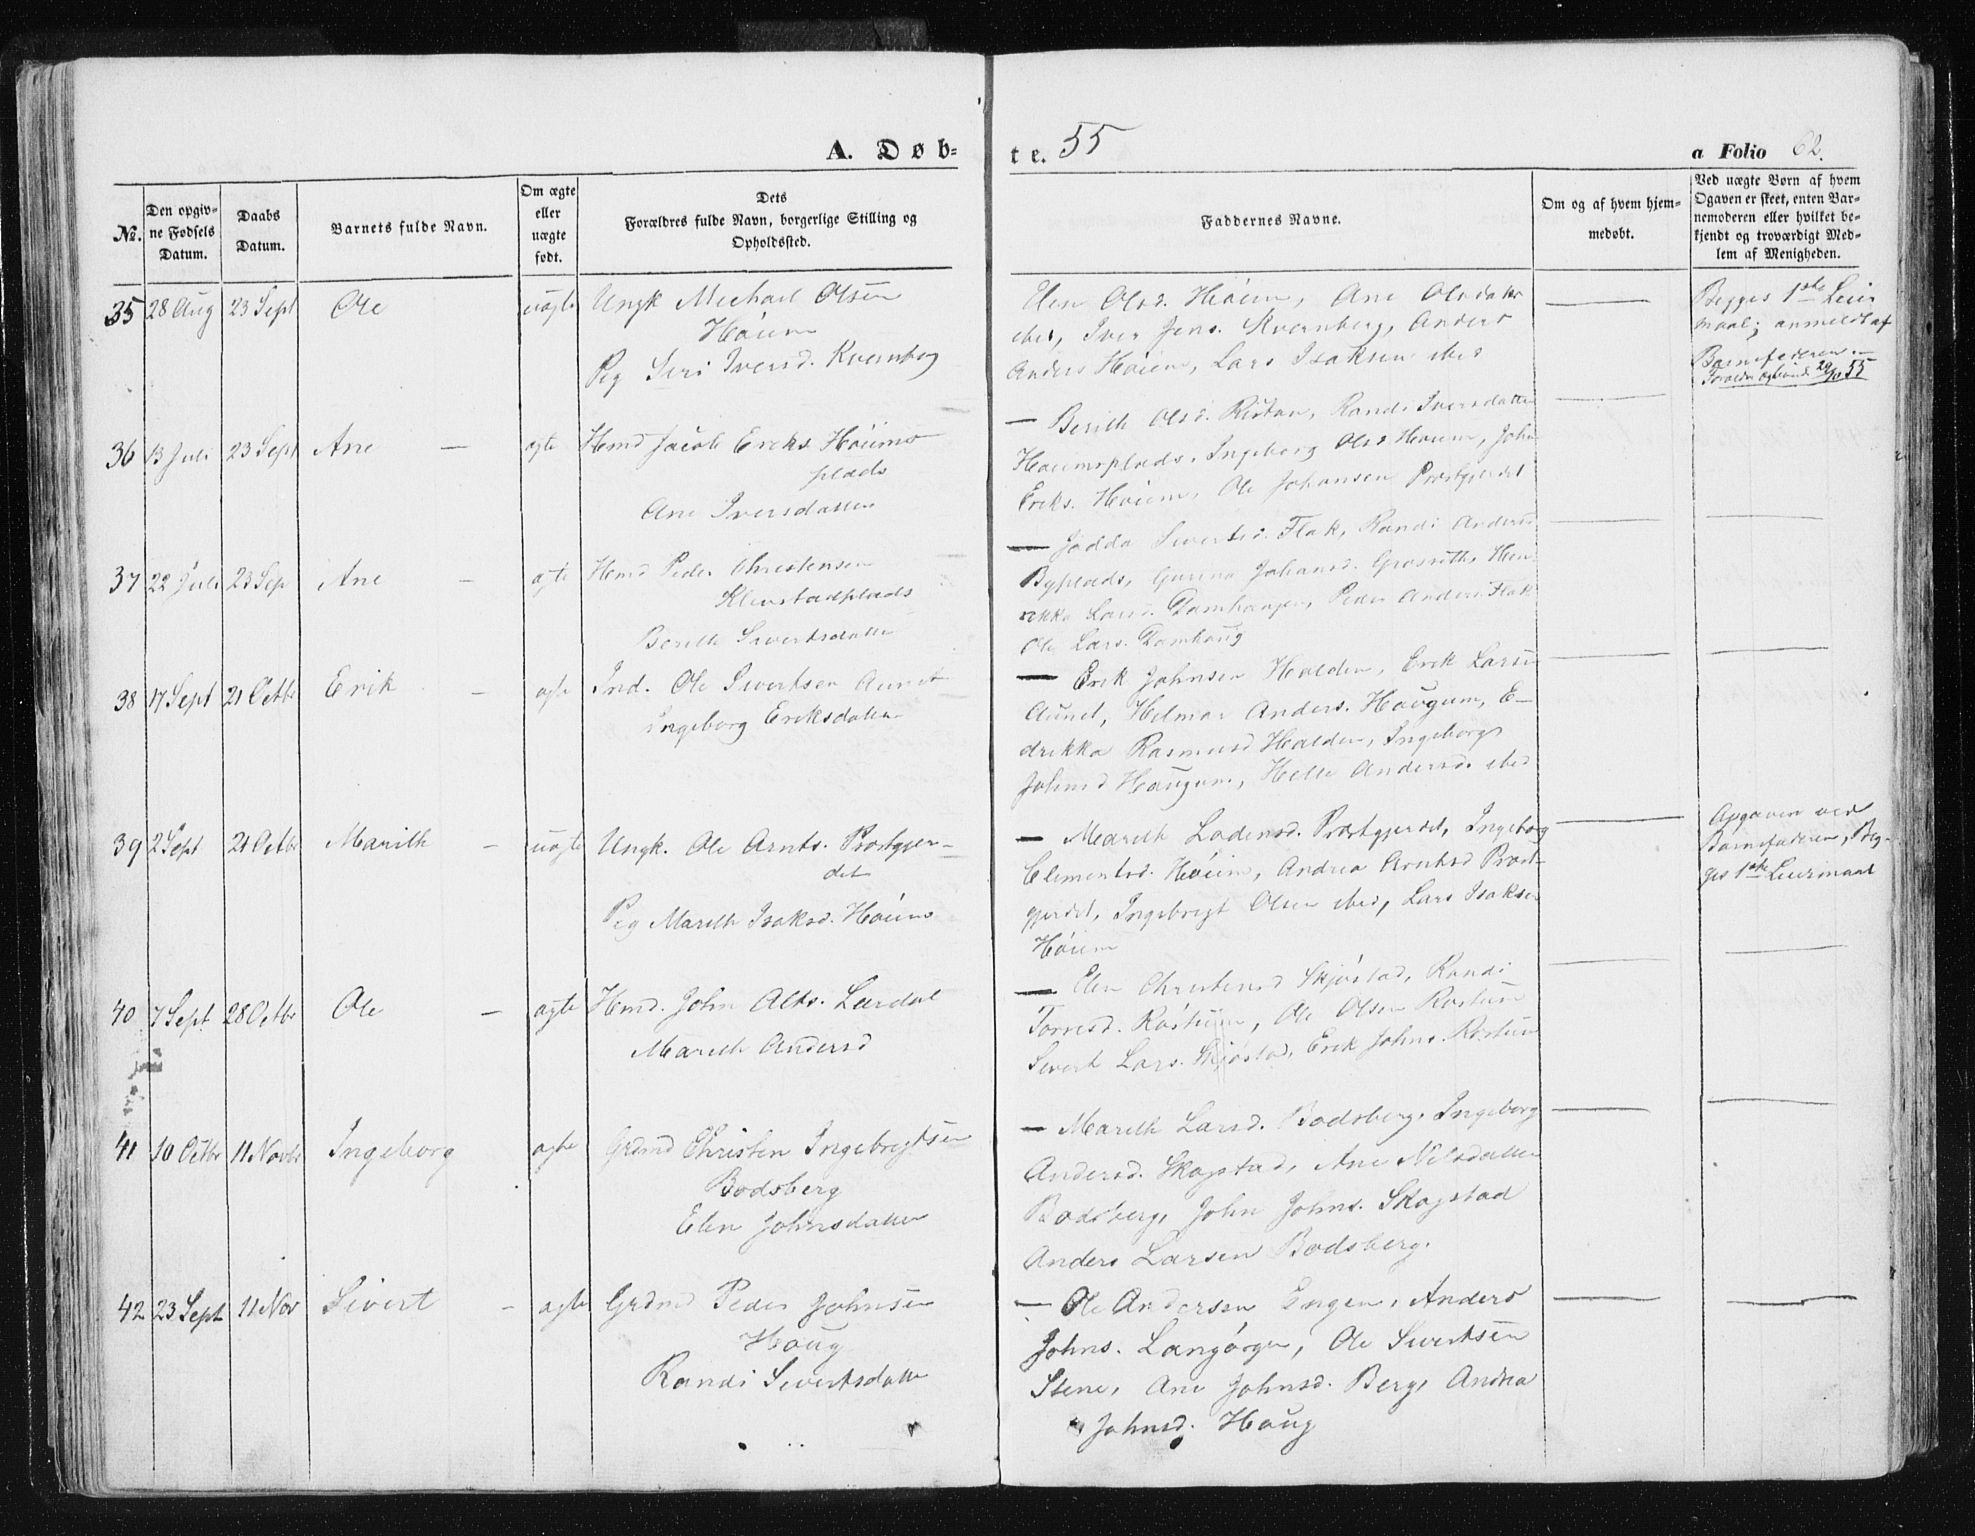 A. Døb-
te. 55
a Folio 62.
№.
Den opgiv-
ne Fødsels
Datum.
Daabs
Datum.
Barnets fulde Navn.
Om ægte
eller
uægte
født.
Dets
Forældres fulde Navn, borgerlige Stilling og
Opholdssted.
Faddernes Navne.
Om og af hvem hjem-
medøbt.
Ved uægte Børn af hvem
Opgaven er skeet, enten Bar-
nemoderen eller hvilket be-
kjendt og troværdigt Med-
lem af Menigheden.
35 28 Aug 23 Sept Ole uægte Ungk Michael Olsen
Høiem
Pig Siri Iversd. Kvernberg
Elen Olsd. Høiem, Ane Olsdatter
ibid, Iver Jens. Kvernberg, Anders
Anders Høiem, Lars Isaksen ibid
Begges 1ste Leier
maal; anmeldt af
Barnefaderen.—
55
36 13 Juli 23 Sept Ane — ægte Hmd Jacob Eriks Høiems
plads
Ane Iversdatter
— Berith Olsd. Ristan, Randi Iversdatter
Høiemsplads, Ingeborg Olsd Høiem, John
Eriks. Høiem, Ole Johansen Præstgjerdet
37 22 Juli 23 Sep Ane — ægte Hmd Peder Christensen
Klevstadplads
Berith Sivertsdatter
— Jadda Sivertsd. Flak, Randi Andersd
Byplads, Gurina Johansd. Grasseth, Hen
rikka Larsd. Damhaugen, Peder Anders. Flak
Ole Lars. Damhaug
38 17 Sept 21 Octbr Erik — ægte Ind. Ole Sivertsen Aunet
Ingeborg Eriksdatter
— Erik Johnsen Halden, Erik Larsen
Aunet, Helmer Anders. Haugum, E-
drikka Rasmusd Halden, Ingeborg
Johnsd Haugum, Helle Andersd. ibid
39 2 Sept 21 Octbr Marith — uægte Ungk. Ole Arnts. Præstgjer-
det
Pig Marith Isaksd. Høiems
— Marith Ladensd. Præstgjerdet, Ingeborg
Clementsd. Høiem, Andrea Arntsd Præst-
gjerdet, Ingebrigt Olsen ibid, Lars Isaksen
Høiem
Opgaven ved
Barnefaderen, Beg-
ges 1ste Leiermaal
40 7 Sept 28 Octbr Ole — ægte Hmd. John Alts. Lerdal
Marith Andersd
— Elen Christensd Skjøstad, Randi
Torresd. Røstum, Ole Olsen Røstum
Sivert Lars. Skjøstad, Erik Johns. Røstum
41 10 Octbr 11 Novbr Ingeborg ægte Grdmd Christen Ingebrigtsen
Bodsberg
Elen Johnsdatter
— Marith Larsd. Bodsberg, Ingeborg
Andersd. Skogstad, Ane Nilsdatter
Bodsberg, John Johns. Skogstad
Anders Larsen Bodsberg.
42 23 Sept 11 Nov Sivert — ægte Grdmd Peder Johnsen
Houg
Randi Sivertsdatter
— Ole Andersen Engen, Anders
Johns. Langørgen, Ole Sivertsen
Stene, Ane Johnsd. Berg, Andrea
Johnsd. Houg